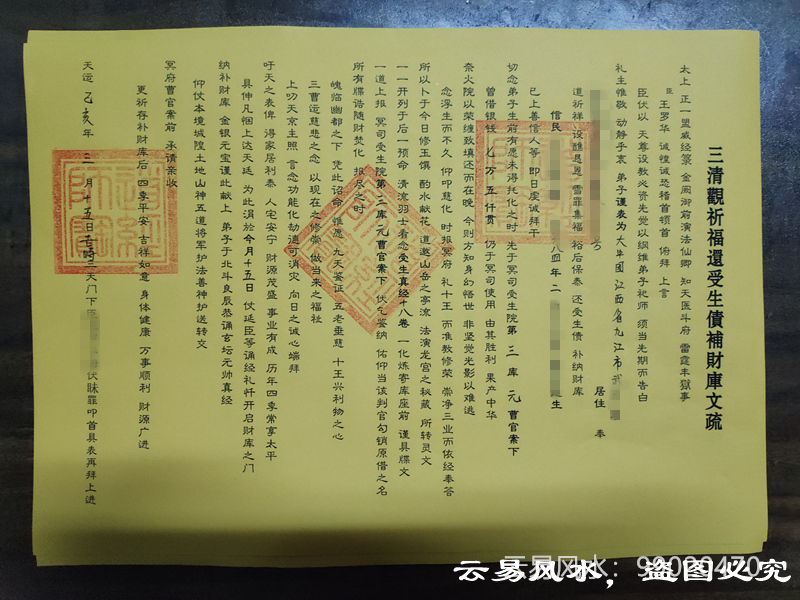 三清觀祈福還受生債補財庫文疏
太上 正一盟威经箓 金阙御前演法仙卿 知天医斗府 雷霆丰獄事
臣 王罗华 诚惶诚恐稽首顿首 俯拜 上言
臣伏以 天尊设教必资先觉以纲维弟子祀师 须当先期而告白
礼主惟敬 动静于衷 弟子谨表为大中国江西省九江市
居住 奉
道祈祥 设醮恳恩 雪罪集福 裕后保泰 还受生债 补纳财库
信民 八四年二 生
已上善信人等 即日虔诚拜干
切念弟子生前有愿未得托化之时 先于冥司受生院第三库 元曹官案下
曾借银钱 亿万五仟贯 仍于冥司使用 由其胜利 果产中华
奈火院以荣缠致填还而在晚 今则方知身幻悟世 非坚觉光影以难逃
念浮生而不久 仰叩慈化 时报冥府 礼十王 而准教修荣 崇净三业而依经奉答
所以卜于今日修玉惧 酌水献花 道遨山岳之亭流 法演龙宫之秘藏 所转灵文
一一开列于后一预命 清流羽士看念受生真经十八卷 一化炼寄库座前 谨具牒文
一道上报 冥司受生院第三库元曹官案下 伏乞鉴纳 佑仰当该判官勾销原借之名
所有牒诰随财焚化 报尽之时
魄临幽都之下 凭此诏命 雖愿 九天鉴证 五老垂慈 十王兴利物之心
三曹运慈悲之念 以现在之修崇 做当来之福社
上叨天京主照 言念功能化劫德可消灾 向日之诚心端拜
吁天之表俾 得家居利泰 人宅安宁 财源茂盛 事业有成 历年四季常享太平
具伸凡悃上达天廷 为此涓於今月十五日 仗延臣等诵经礼忏开启财库之门
纳补财库 金银元宝谨此献上 弟子于北斗良辰恭诵玄坛元帅真经
仰仗本境城隍土地山神五道将军护法善神护送转文
冥府曹官案前 承请亲收
更祈存补财库后 四季平安 吉祥如意 身体健康 万事顺利 财源广进
天运 乙亥年 三月十五日 三天门下臣 伏眛罪叩首具表再拜上进
云易风水：98000470
云易风水，盗图必究